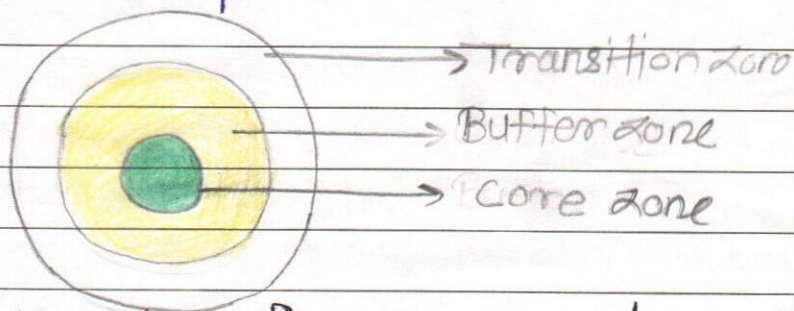 Transition zone
Buffer zone
Core zone